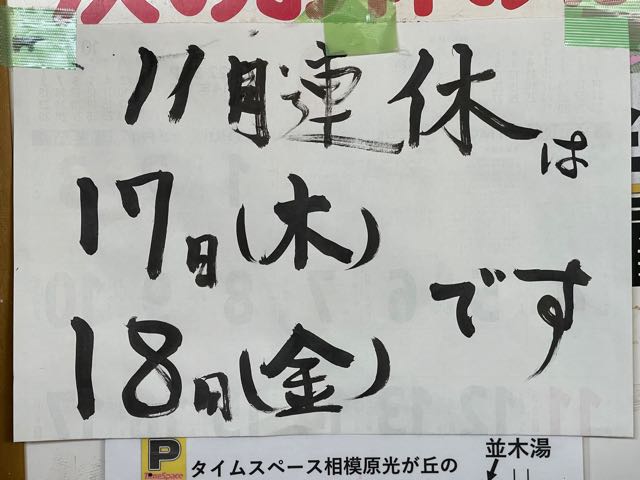 11月連休は
17日(木)
18日(金)です
並木湯
P
TimeSpace
タイムスペース相模原光が丘の